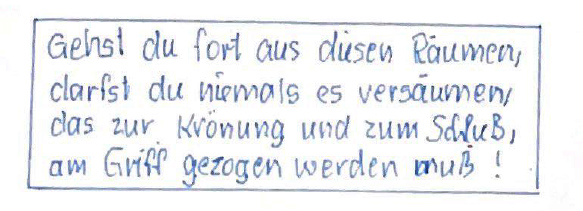 Gehst du fort aus diesen Räumen,
darfst du niemals es versäumen,
das zur Krönung und zum Schluß,
am Griff gezogen werden muß !